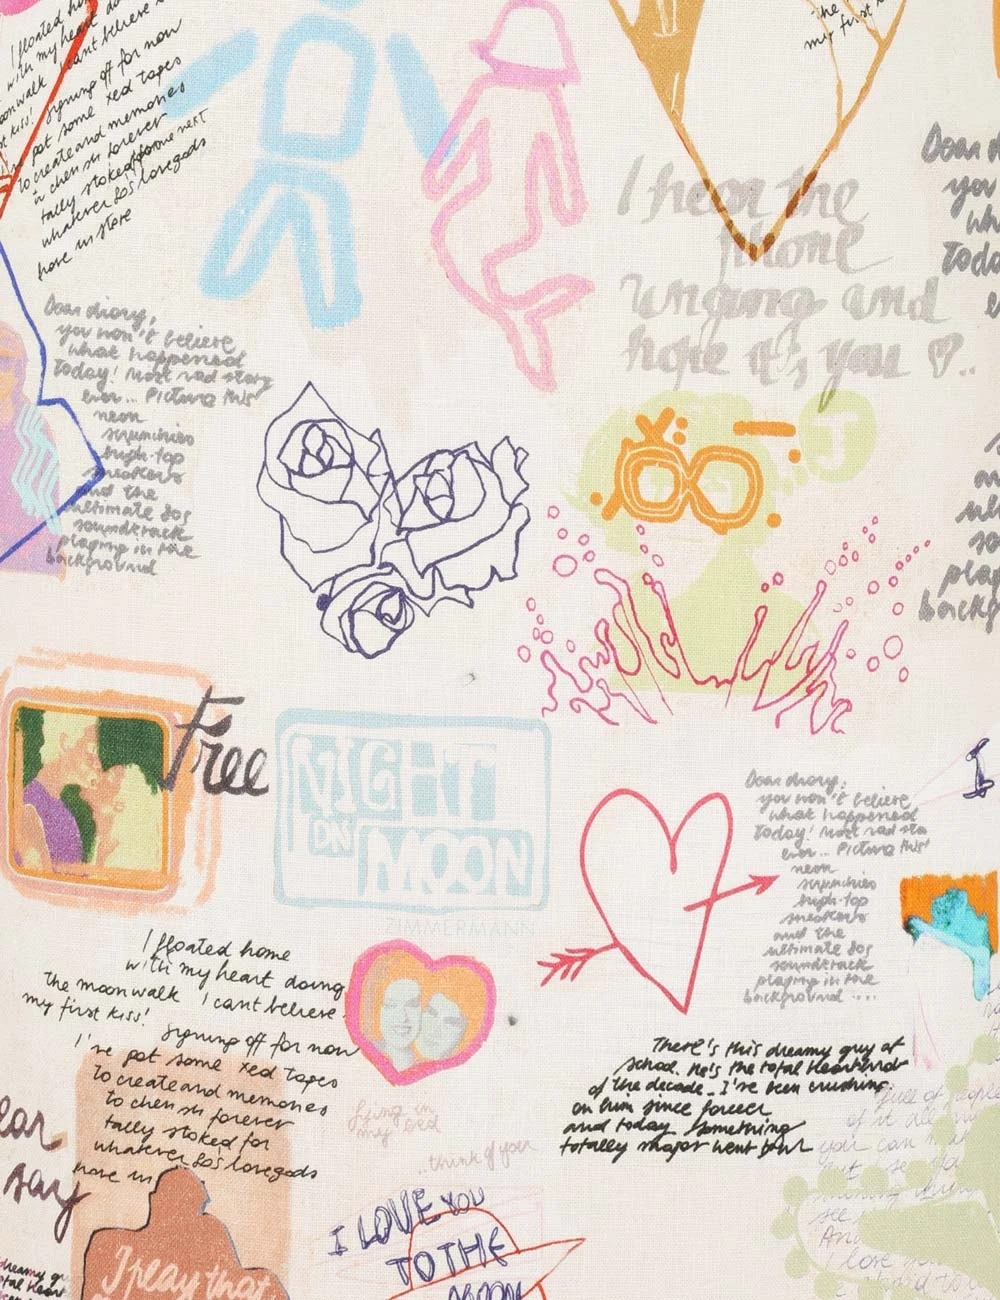 I floated home
with my heart doing
moonwalk I cant believe
my first kiss!
signing off for now
pot some xed tapes
to create and memories
to cherish forever
tally stoked for
whatever 80's lovegods
have in store
the
my first
I hear the
phone
ringing and
hope it's you ♡..
Dear diary,
you won't believe
what happened
today! Most rad story
ever... Picture this
neon
scrunchies
high-top
sneakers
and the
ultimate 80s
soundtrack
playing in the
background
Dear
you
wh
Toda
play
backg
J
Free
NIGHT
ON
MOON
ZIMMERMANN
Dear diary,
you won't believe
what happened
today! Most rad sto
ever... Picture this
neon
scrunchies
high-top
sneakers
and the
ultimate 80s
soundtrack
playing in the
background ....
I floated home
with my heart doing
the moonwalk I cant believe
my first kiss!
signing off for now
I've pot some xed tapes
to create and memories
to cherish forever
tally stoked for
whatever 80's lovegods
have in
There's this dreamy guy at
school. He's the total heartthrob
of the decade. I've been crushing
on him since forever
and today something
totally major went down
lying in
my bed
..think of you
full of people
of it all my
you can
ear
say
I LOVE YOU
TO THE
MOON
I play that
dreamy gu
total heart
I love you